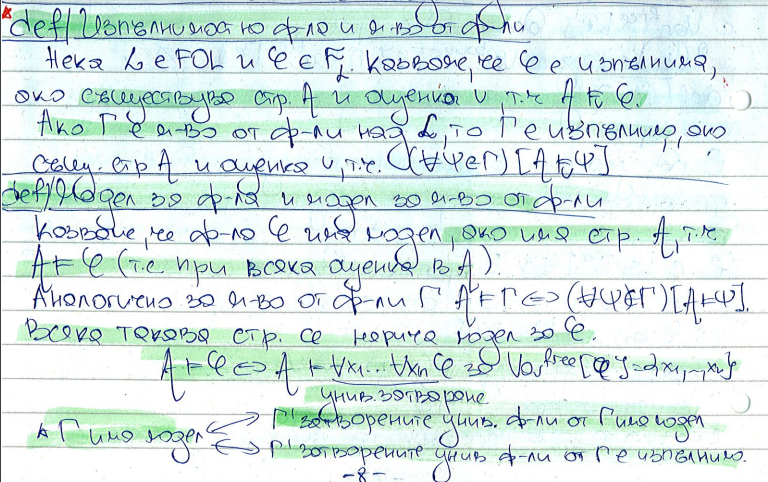 def/ Изпълнимост на ф-ла и м-во от ф-ли
Нека L е FOL и φ ∈ F_L. Казваме, че φ е изпълнима,
ако съществува стр. A и оценка v, т.ч. A ⊨_v φ.
Ако Γ е м-во от ф-ли над L, то Γ е изпълнимо, ако
същ. стр A и оценка v, т.ч. (∀ψ∈Γ)[A ⊨_v ψ]
def/ Модел за ф-ла и модел за м-во от ф-ли
Казваме, че ф-ла φ има модел, ако има стр. A, т.ч.
A ⊨ φ (т.е при всяка оценка в A).
Аналогично за м-во от ф-ли Γ A ⊨ Γ ⇔ (∀ψ∈Γ)[A ⊨ ψ].
Всяка такава стр. се нарича модел за φ.
A ⊨ φ ⇔ A ⊨ ∀x₁...∀xₙ φ за Var^free[φ] = {x₁,..,xₙ}
унив. затваряне
Γ има модел ⇔ Γ' затворените унив. ф-ли от Γ има модел
⇔ Γ' затворените унив ф-ли от Γ е изпълнимо.
-8-